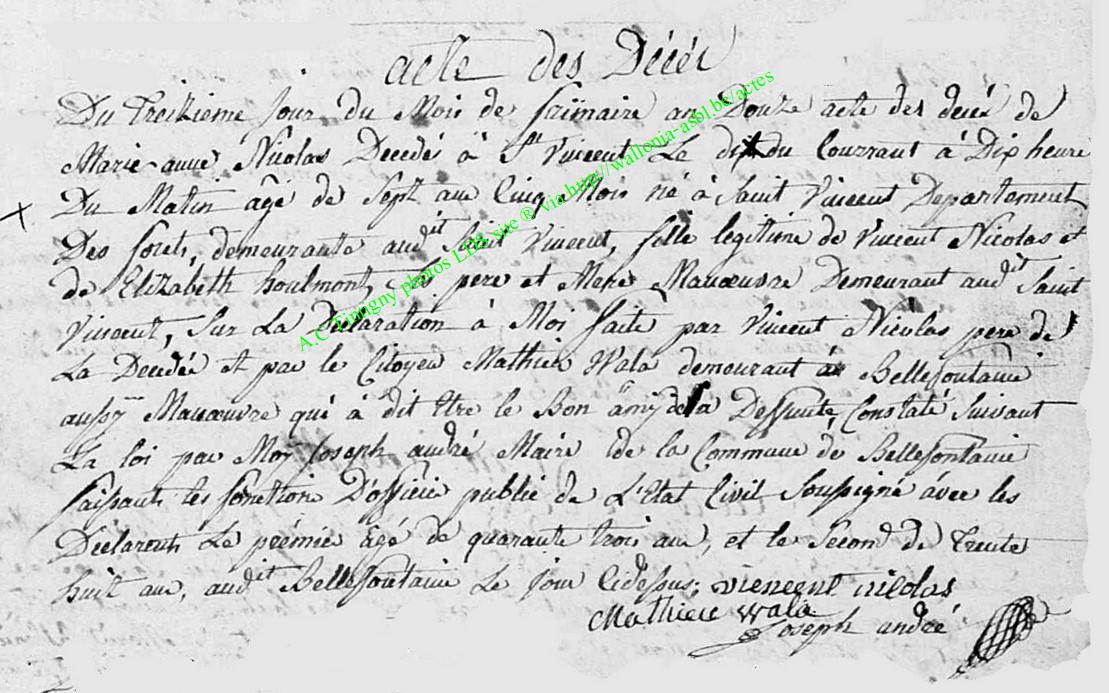 acte des Décés
Du Treizieme Jour du Mois de frimaire an Douze acte des decé de
Marie anne Nicolas Decedé à St Vincent Le dix du Courrant à Dix heure
Du Matin âgé de Sept ans Cinq Mois né à Saint Vincent Departement
Des forets, demeurante audit Saint Vincent, fille legitime de Vincent Nicolas et
de Elizabeth houlmont, pere et Mere Manœuvre Demeurant audit Saint
Vincent, Sur La Declaration à Moi faite par Vincent Nicolas pere de
La Decedée et par le Citoyen Mathieu Wala demeurant à Bellefontaine
aussy Manœuvre qui à dit Etre le Bon amy de la Deffunte Constaté Suivant
La loi par Moy Joseph andré Maire de la Commune de Bellefontaine
faisant les fonction D'officie public de L'Etat Civil Soussigné avec les
Declarents Le prémié âgé de quarante trois ans, et le Second de Trente
huit ans, audit Bellefontaine Le Jour Cidessus; viencent nicolas
Mathieu Wala
Joseph andré
A.C. Tintigny photos LDH site ® via http//wallonia-asbl.be/actes